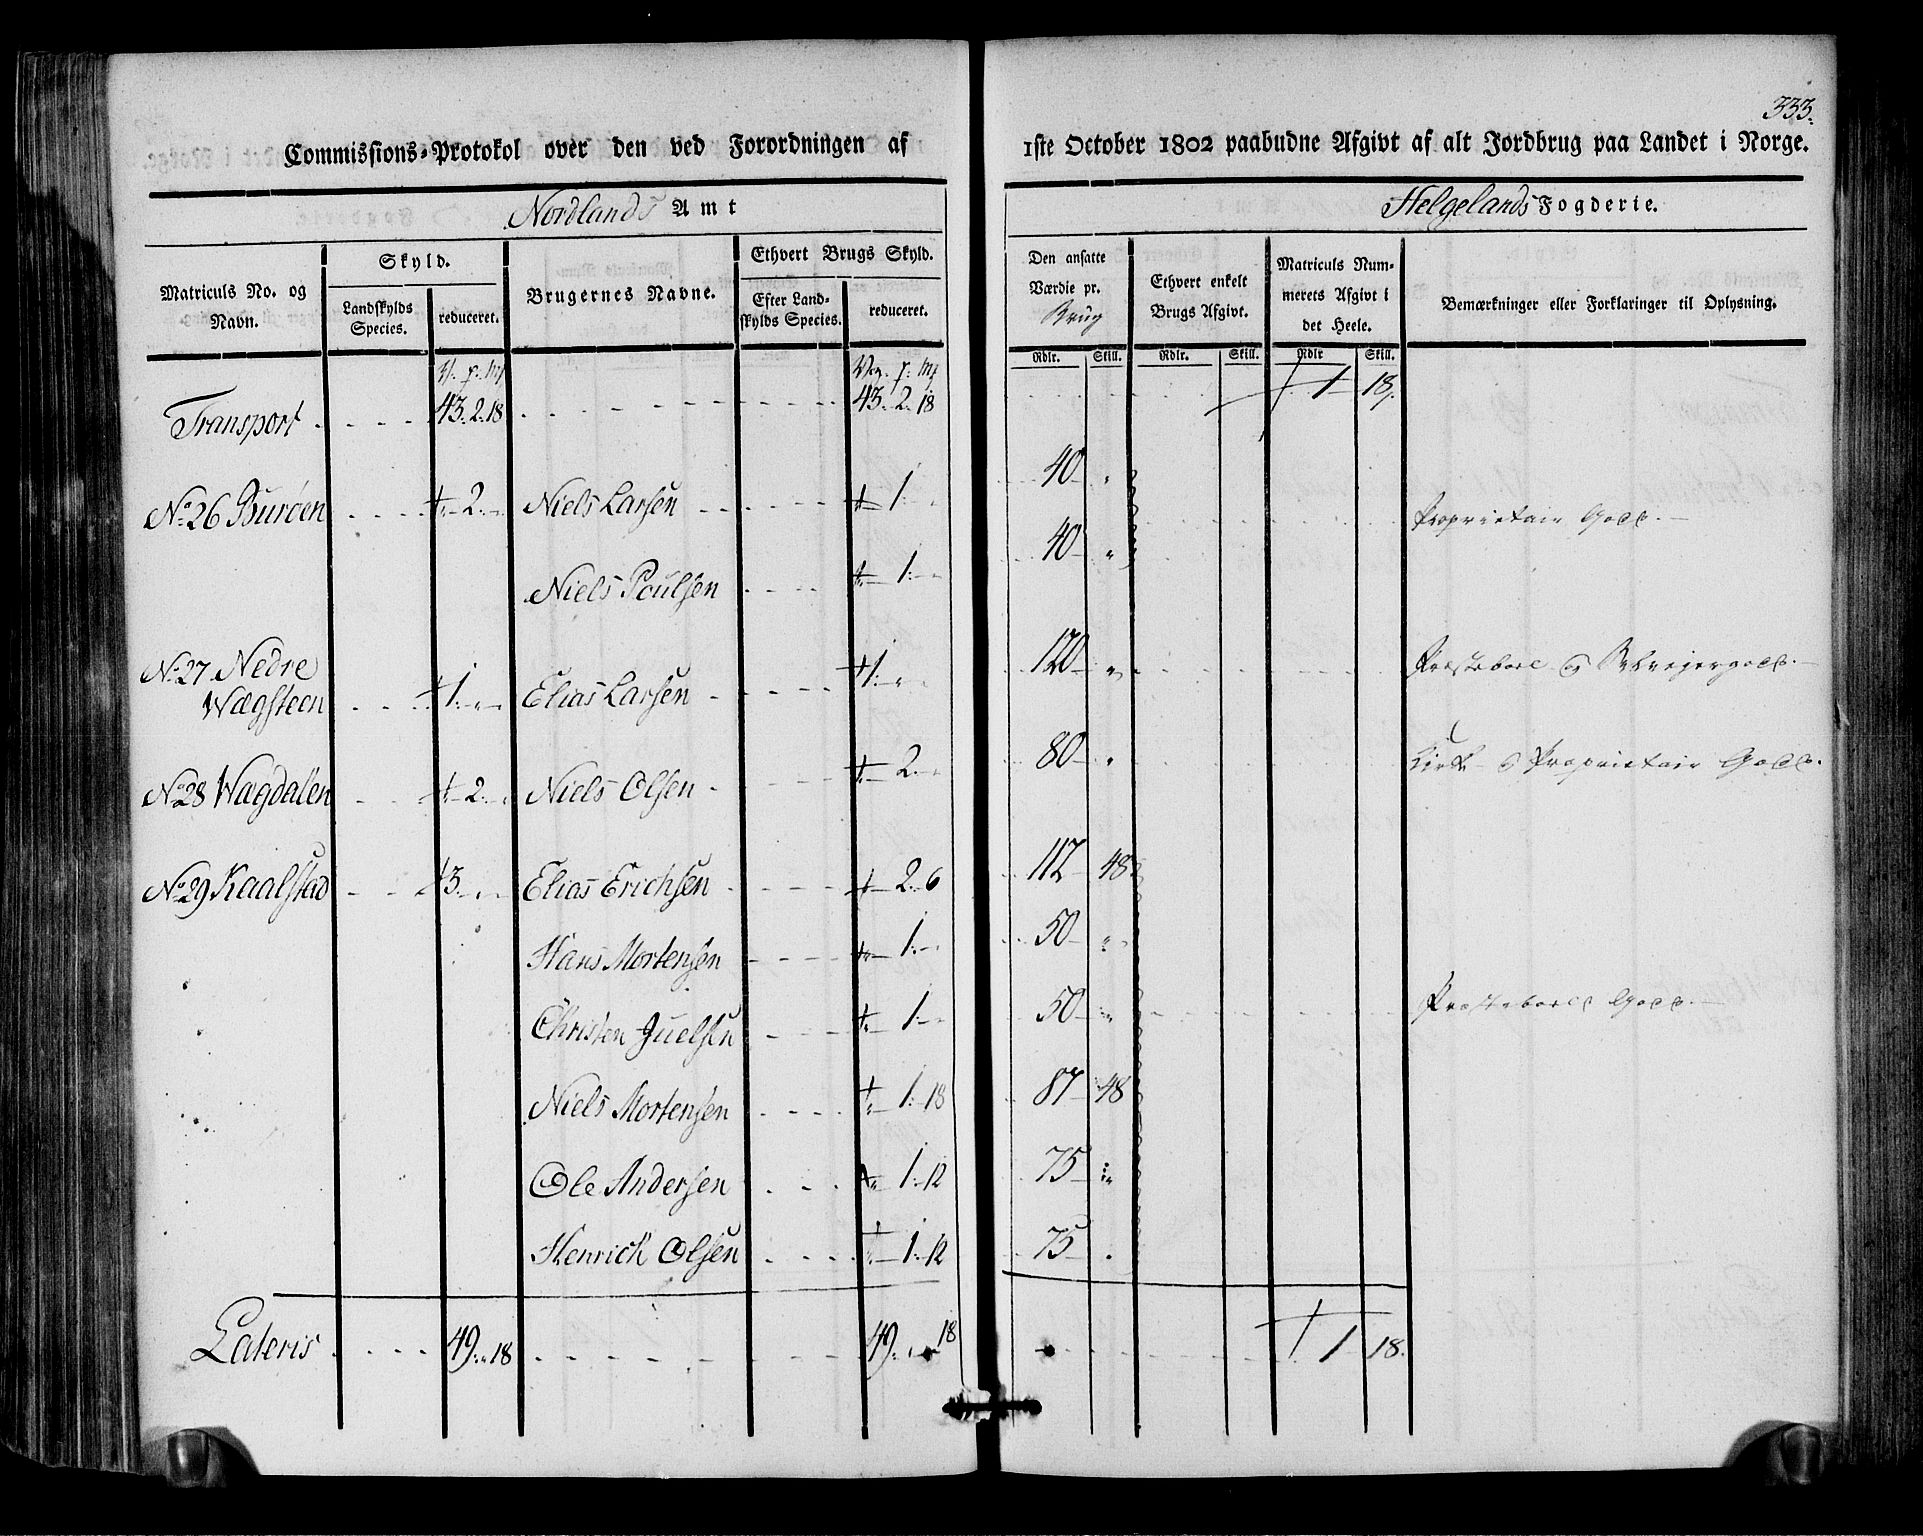 333.
Commissions-Protokol over den ved Forordningen af 1ste October 1802 paabudne Afgivt af alt Jordbrug paa Landet i Norge.
Nordlands Amt Helgelands Fogderie.
Matriculs No. og Navn.
Skyld.
Landskylds Species.
reduceret.
Brugernes Navne.
Ethvert Brugs Skyld.
Efter Landskylds Species.
reduceret.
Den ansatte Værdie pr. Brug
Ethvert enkelt Brugs Afgivt.
Matriculs Nummerets Afgivt i det Heele.
Bemærkninger eller Forklaringer til Oplysning.
Rdlr. Skill. Rdlr. Skill. Rdlr Skill.
Transport 43. 2. 18 43. 2. 18 1 18
No 26 Buröen 2 Niels Larsen 1 40 Proprietair Godz.
Niels Poulsen 1 40
No 27 Nedre
Wægsteen 1 Elias Larsen 1 120 Præstebord & Selveiergodz.
No 28 Wægdalen 2 Niels Olsen 2 80 Kirke & Proprietair Godz.
No 29 Kaalstad 3 Elias Erichsen 2 6 112 48
Hans Mortensen 1 50
Christen Juelsen 1 50 Præstebords Godz.
Niels Mortensen 1 18 87 48
Ole Andersen 1 12 75
Henrich Olsen 1 12 75
Lateris 49 " 18 49 " 18 1 18.